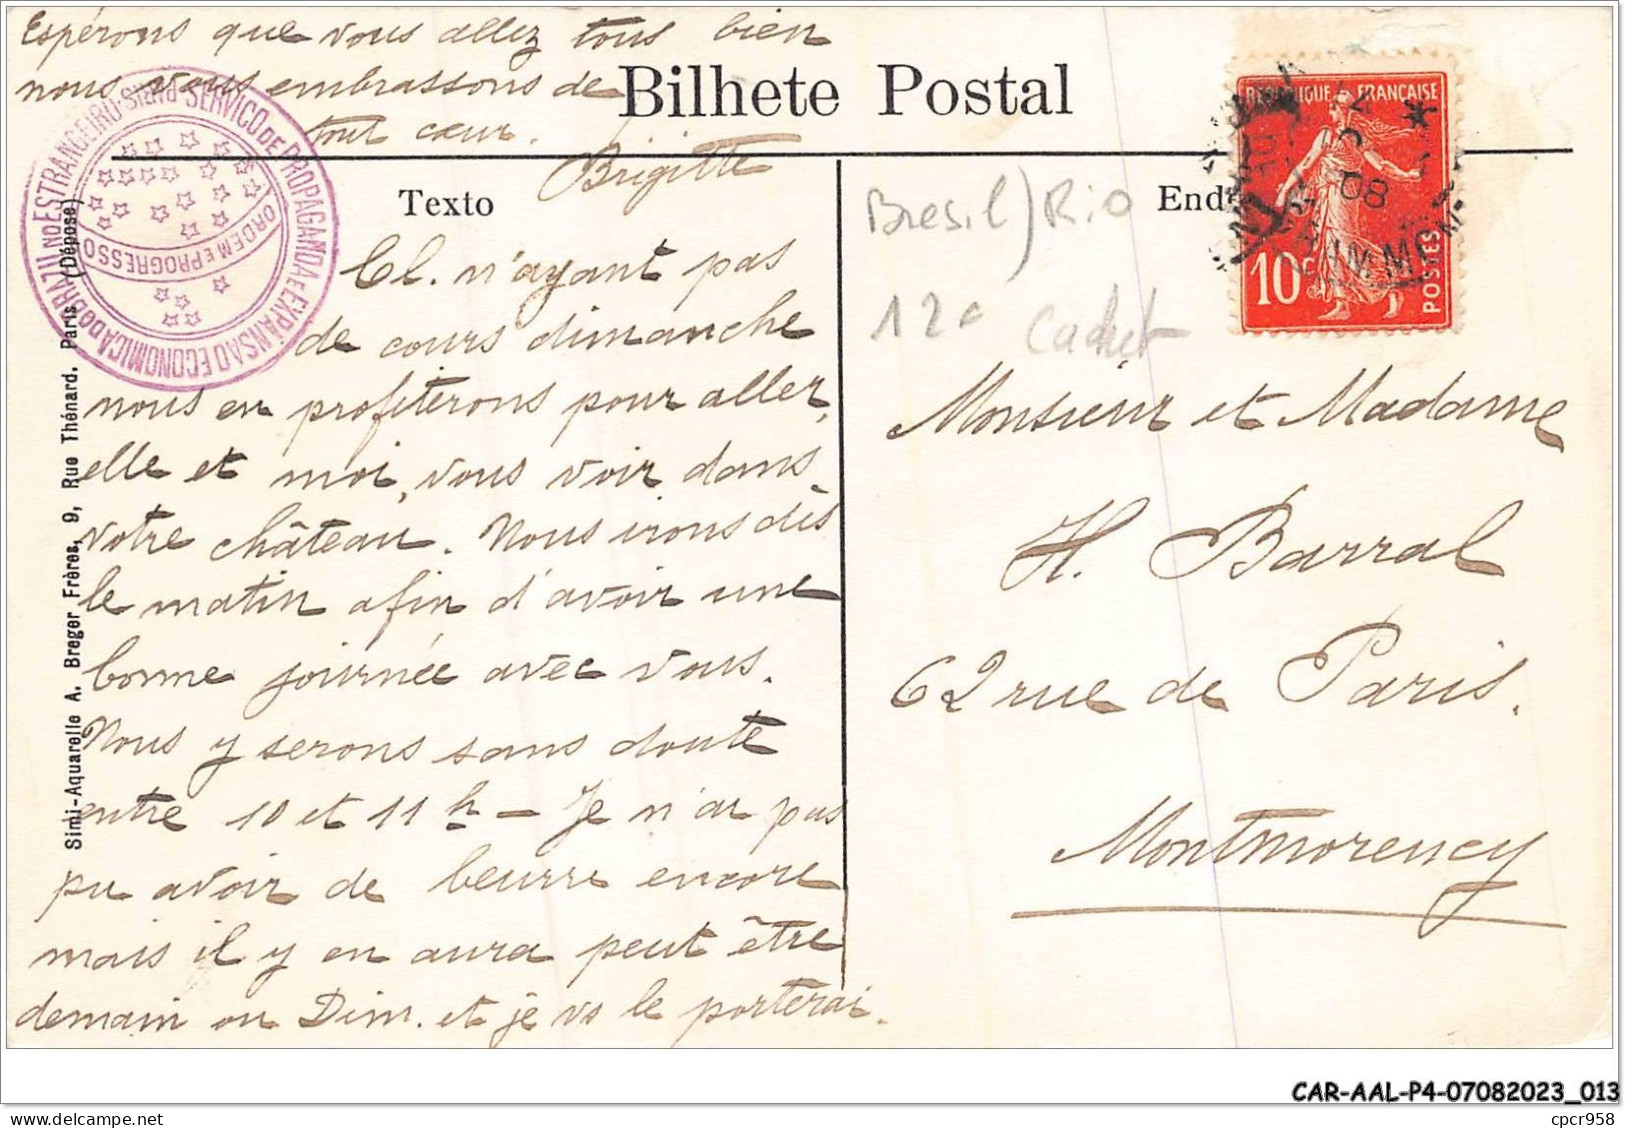 Espérons que vous allez tous bien
nous vous embrassons de
tout cœur.
Brigitte
Bilhete Postal
Texto
SERVICO DE PROPAGANDA E EXPANSÃO ECONOMICA DO BRAZIL NO ESTRANGEIRO-PARIS
ORDEM E PROGRESSO
Cl. n'ayant pas
de cours dimanche
nous en profiterons pour aller,
elle et moi, vous voir dans
votre château. Nous irons dès
le matin afin d'avoir une
bonne journée avec vous.
Nous y serons sans doute
entre 10 et 11 h – Je n'ai pas
pu avoir de beurre encore
mais il y en aura peut être
demain ou Dim. et je vs le porterai.
Simi-Aquarelle A. Breger Frères, 9, Rue Thénard. Paris (Déposé)
Bresil) Rio
12c
Cachet
End
REPUBLIQUE FRANÇAISE
10c
POSTES
08
Monsieur et Madame
H. Barral
62 rue de Paris.
Montmorency
CAR-AAL-P4-07082023_013
cpcr958